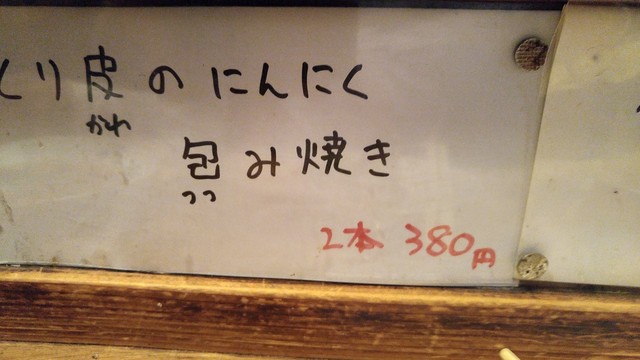 とり皮のにんにく
かわ
包み焼き
つつ
2本 380円